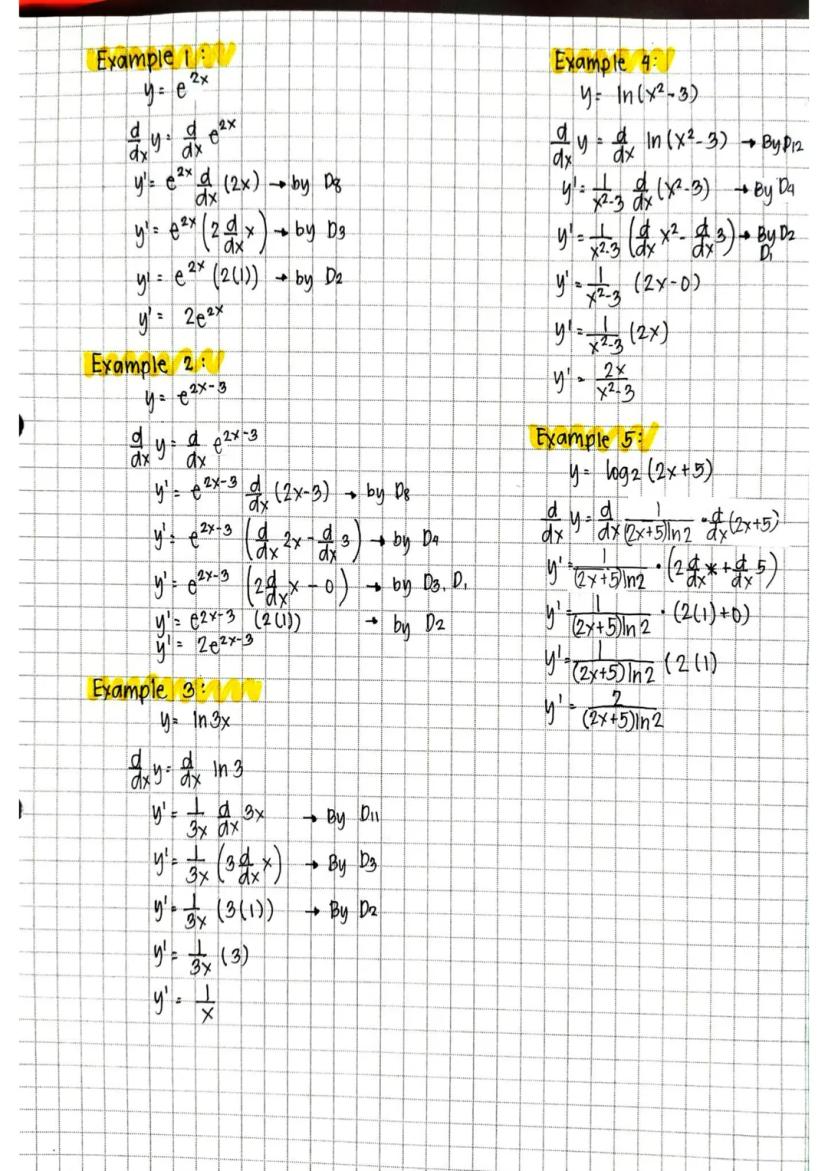 Example 1:
y = e^{2x}
d/dx y = d/dx e^{2x}
y' = e^{2x} d/dx (2x) → by D8
y' = e^{2x} (2 d/dx x) → by D3
y' = e^{2x} (2(1)) → by D2
y' = 2e^{2x}
Example 2:
y = e^{2x-3}
d/dx y = d/dx e^{2x-3}
y' = e^{2x-3} d/dx (2x-3) → by D8
y' = e^{2x-3} (d/dx 2x - d/dx 3) → by D4
y' = e^{2x-3} (2 d/dx x - 0) → by D3, D1
y' = e^{2x-3} (2(1)) → by D2
y' = 2e^{2x-3}
Example 3:
y = ln 3x
d/dx y = d/dx ln 3
y' = 1/3x d/dx 3x → By D11
y' = 1/3x (3 d/dx x) → By D3
y' = 1/3x (3(1)) → By D2
y' = 1/3x (3)
y' = 1/x
Example 4:
y = ln(x²-3)
d/dx y = d/dx ln(x²-3) → By D12
y' = 1/x²-3 d/dx (x²-3) → By D4
y' = 1/x²-3 (d/dx x² - d/dx 3) → By D2
D1
y' = 1/x²-3 (2x-0)
y' = 1/x²-3 (2x)
y' = 2x/x²-3
Example 5:
y = log₂(2x+5)
d/dx y = d/dx 1/(2x+5)ln2 · d/dx (2x+5)
y' = 1/(2x+5)ln2 · (2 d/dx x + d/dx 5)
y' = 1/(2x+5)ln2 · (2(1)+0)
y' = 1/(2x+5)ln2 (2(1)
y' = 2/(2x+5)ln2